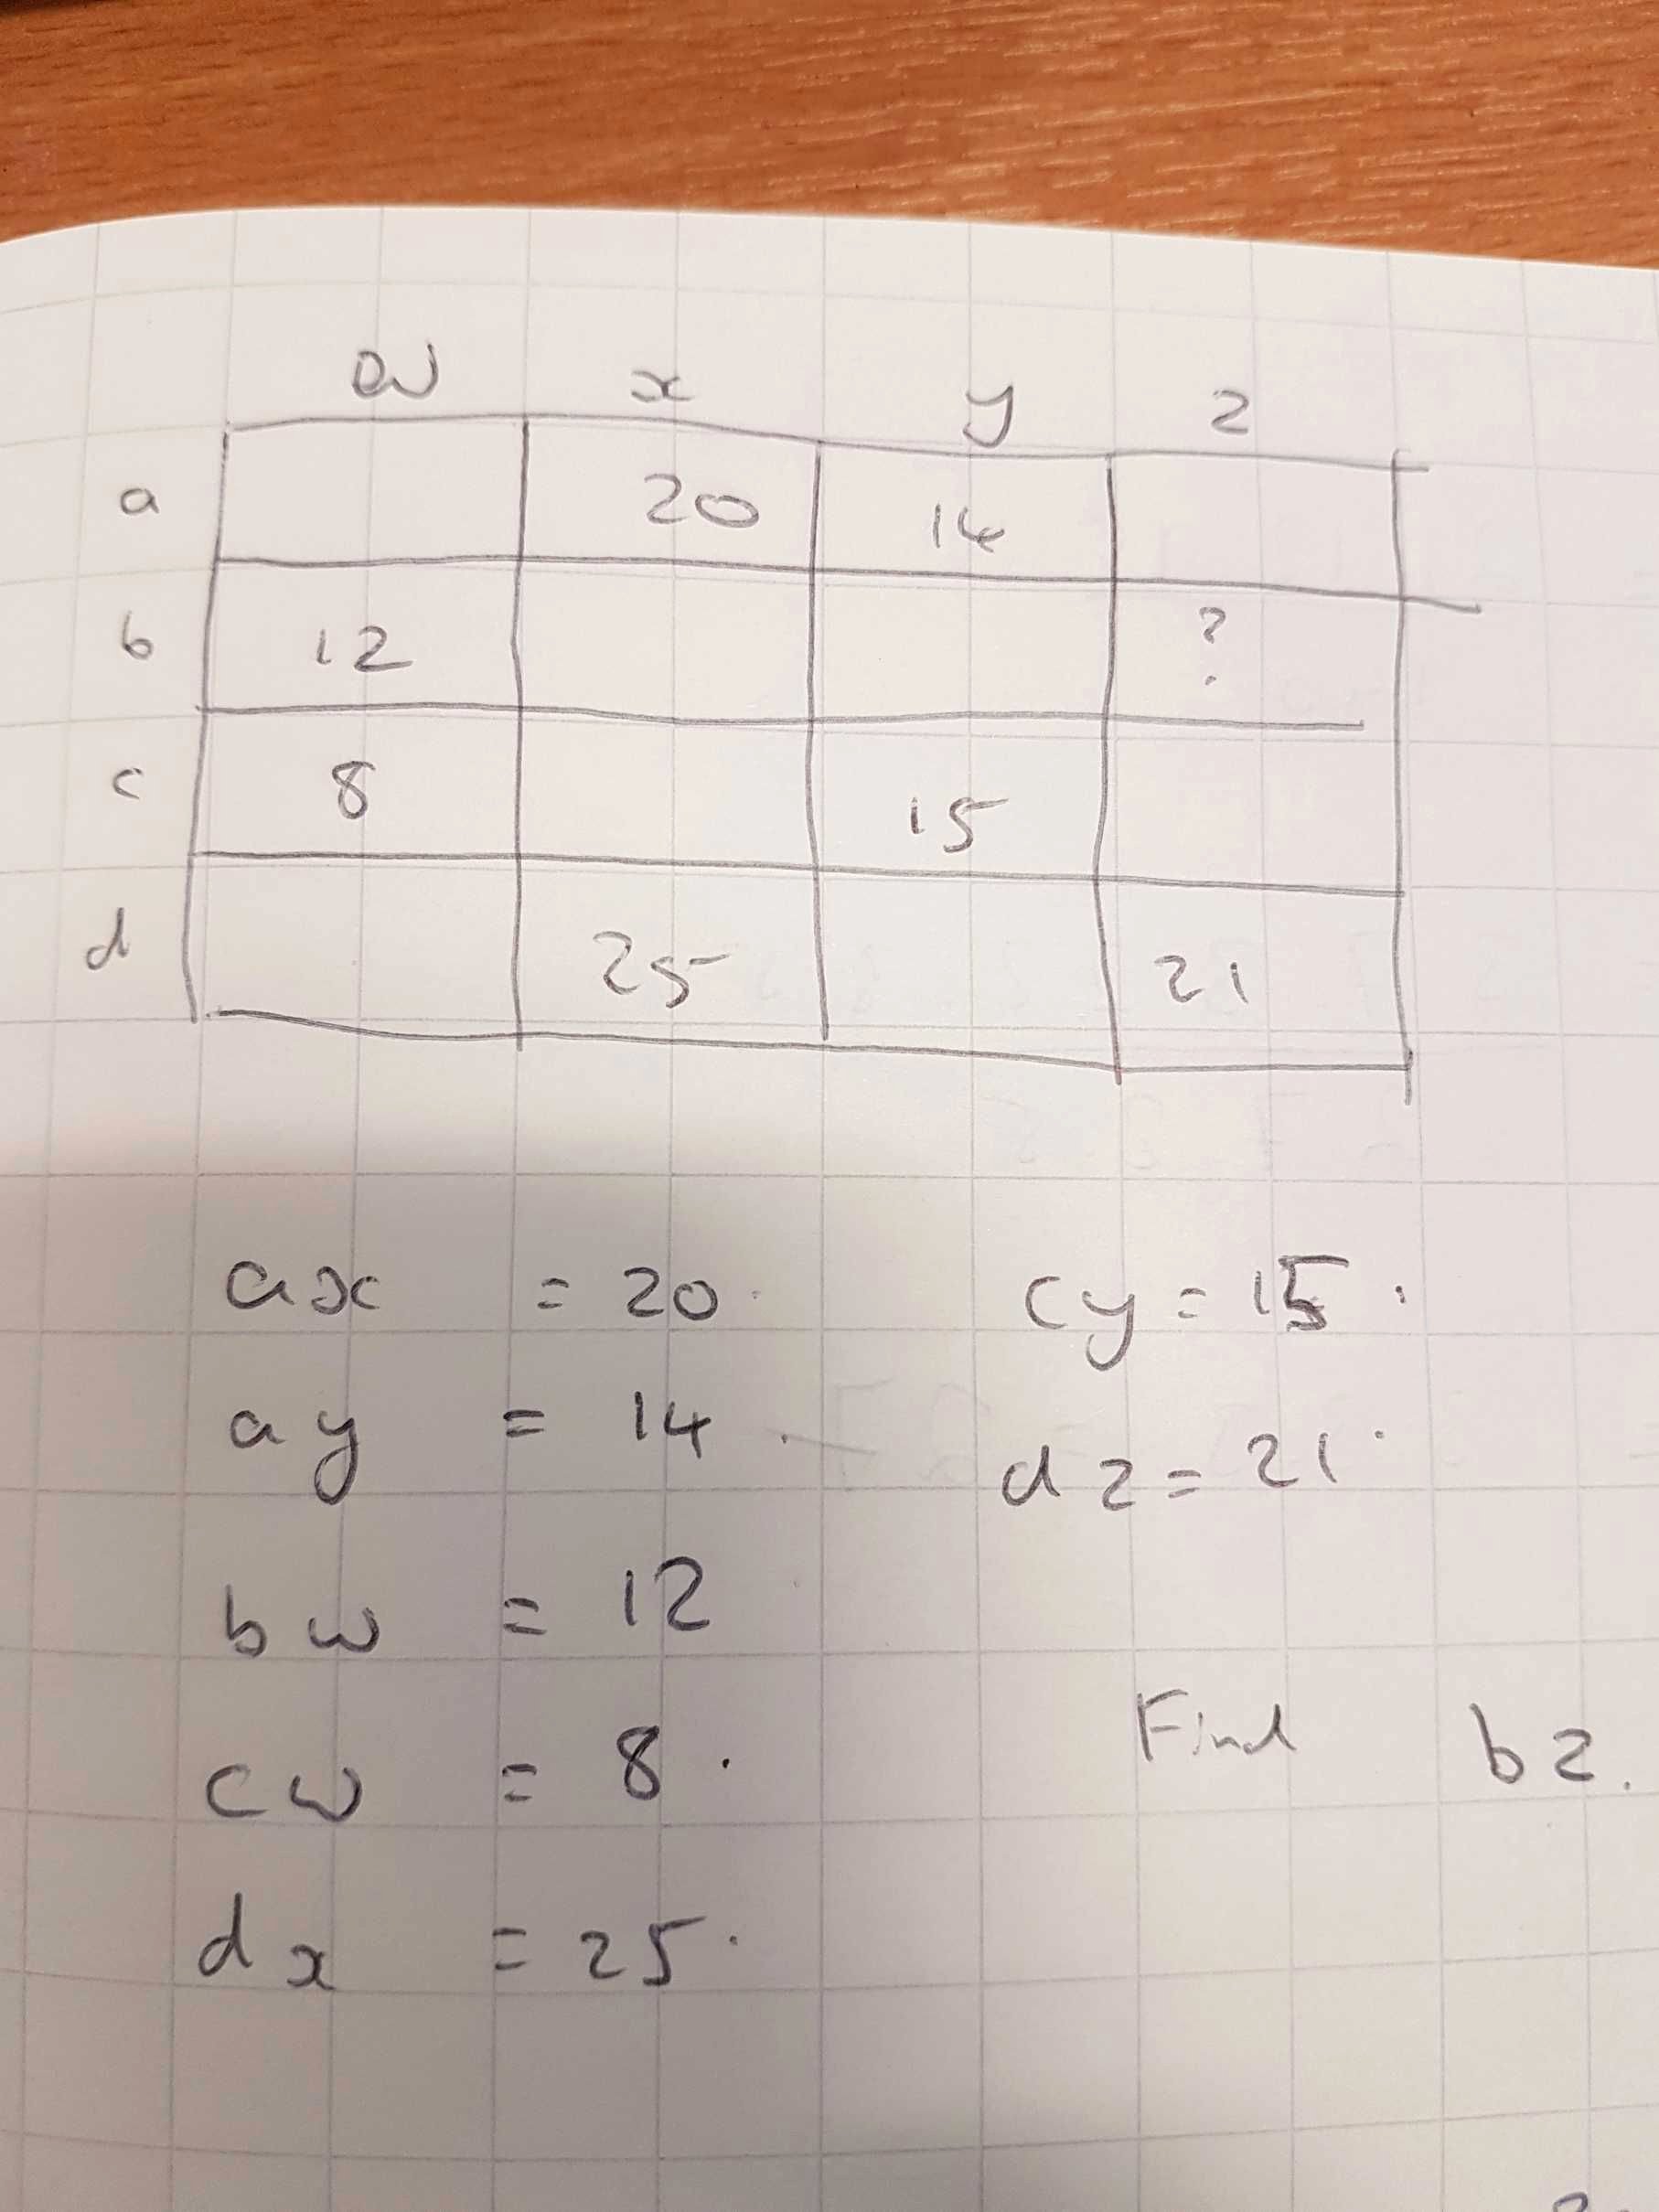 w x y z
a 20 14
b 12 ?
c 8 15
d 25 21
ax = 20.
ay = 14.
bw = 12
cw = 8.
dx = 25.
cy = 15.
dz = 21.
Find bz.